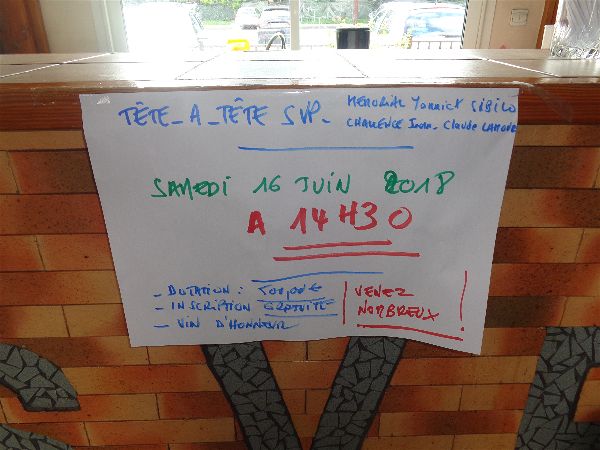 TÊTE_A_TÊTE SVP_ MÉMORIAL Yannick SIBILO
CHALLENGE Jean_Claude LAMOUR
SAMEDI 16 JUIN 2018
A 14H30
_ DOTATION :
_ INSCRIPTION GRATUITE
_ VIN D'HONNEUR
VENEZ
NOMBREUX !